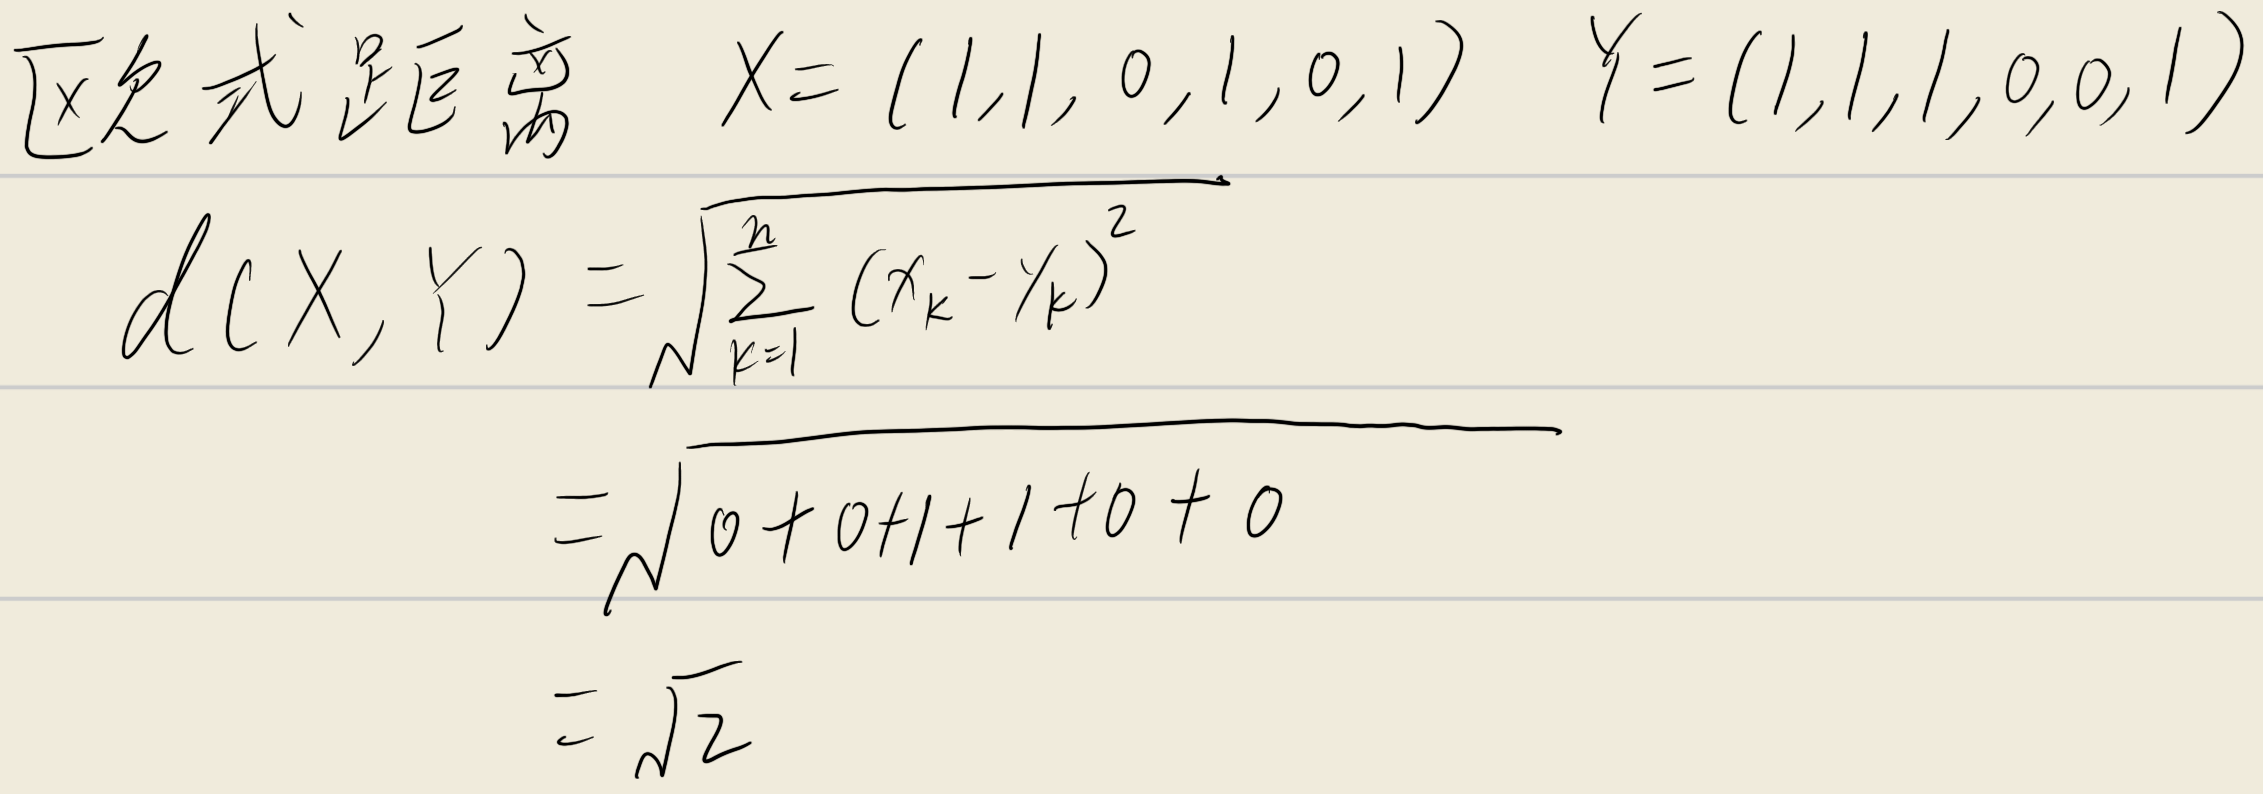 欧式距离 X=(1,1,0,1,0,1) Y=(1,1,1,0,0,1)
d(X,Y)=√(∑_{k=1}^{n}(x_k-y_k)^2)
=√(0+0+1+1+0+0)
=√2